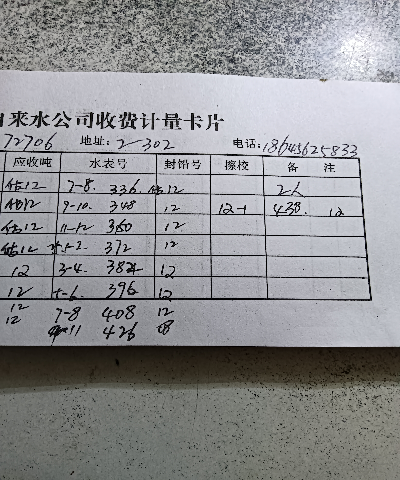 来水公司收费计量卡片
72706 地址: 2-302 电话: 18645625833
应收吨 水表号 封铅号 擦校 备 注
估12 7-8. 336. 估12 2人
估12 9-10. 348 12 12-1 438. 12
估12 11-12 360 12
估12 1-2 372 12
12 3-4. 384 12
12 5-6. 396 12
12
12 7-8 408 12
11 426 18